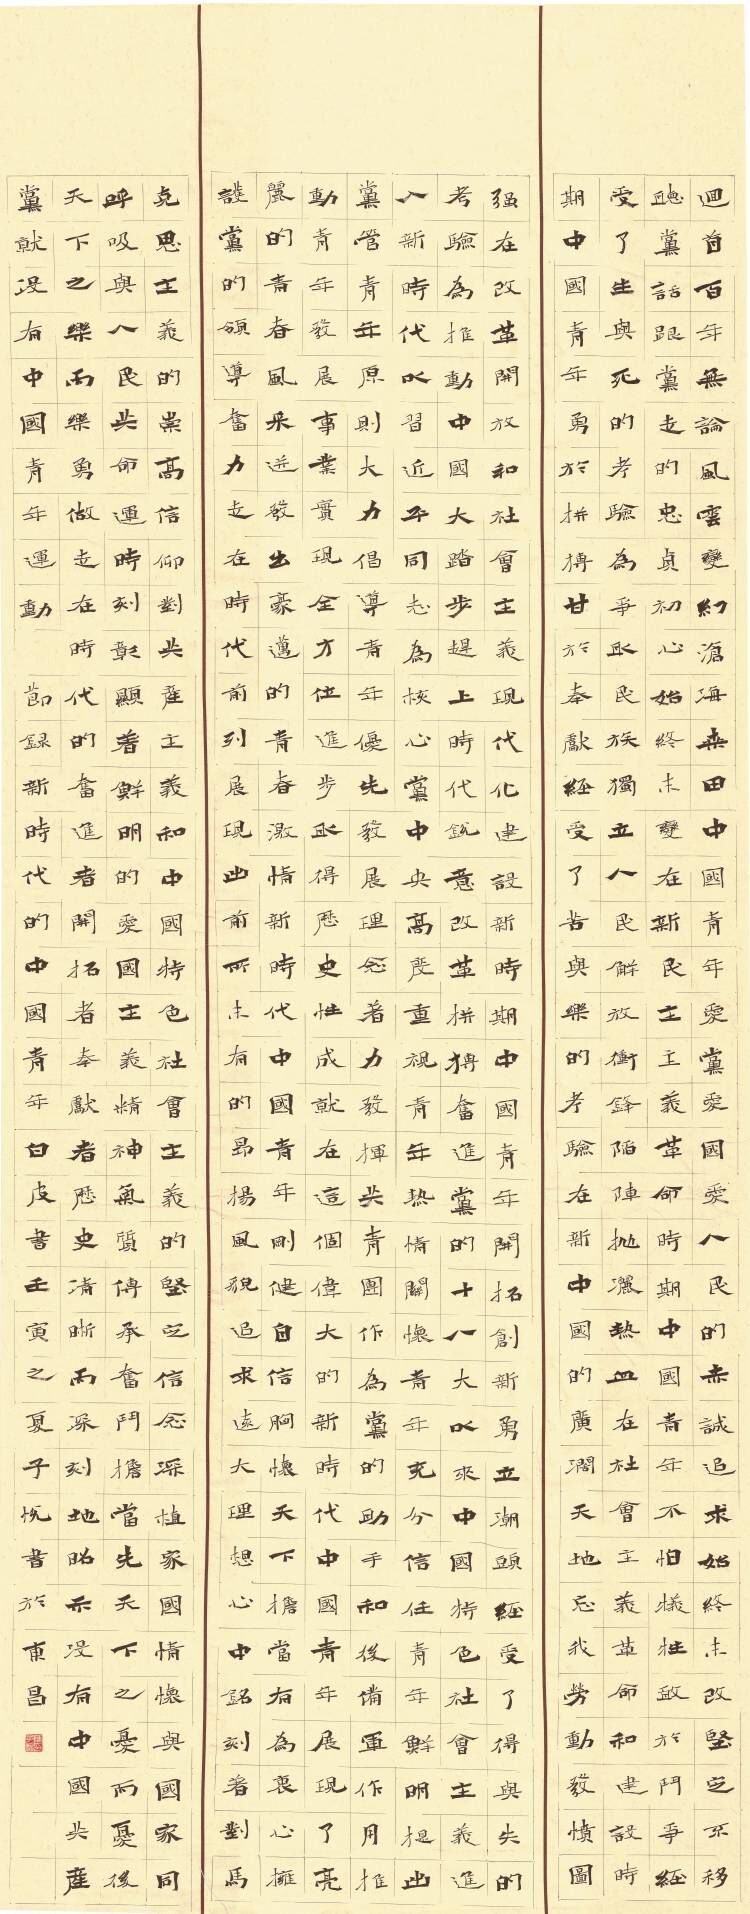 迴首百年無論風雲變幻滄海桑田中國青年愛黨愛國愛人民的赤誠追求始終未改堅定不移
聽黨話跟黨走的忠貞初心始終未變在新民主主義革命時期中國青年不怕犧牲敢於鬥爭經
受了生與死的考驗為爭取民族獨立人民解放衝鋒陷陣拋灑熱血在社會主義革命和建設時
期中國青年勇於拼搏甘於奉獻經受了苦與樂的考驗在新中國的廣闊天地忘我勞動發憤圖
强在改革開放和社會主義現代化建設新時期中國青年開拓創新勇立潮頭經受了得與失的
考驗為推動中國大踏步趕上時代銳意改革拼搏奮進黨的十八大以來中國特色社會主義進
入新時代以習近平同志為核心黨中央高度重視青年熱情關懷青年充分信任青年鮮明提出
黨管青年原則大力倡導青年優先發展理念着力發揮共青團作為黨的助手和後備軍作用推
動青年發展事業實現全方位進步取得歷史性成就在這個偉大的新時代中國青年展現了亮
麗的青春風采迸發出豪邁的青春激情新時代中國青年剛健自信胸懷天下擔當有為衷心擁
護黨的領導奮力走在時代前列展現出前所未有的昂揚風貌追求遠大理想心中銘刻着對馬
克思主義的崇高信仰對共產主義和中國特色社會主義的堅定信念深植家國情懷與國家同
呼吸與人民共命運時刻彰顯着鮮明的愛國主義精神氣質傳承奮鬥擔當先天下之憂而憂後
天下之樂而樂勇做走在時代的奮進者開拓者奉獻者歷史清晰而深刻地昭示沒有中國共產
黨就沒有中國青年運動 節録新時代的中國青年白皮書壬寅之夏子悅書於東昌